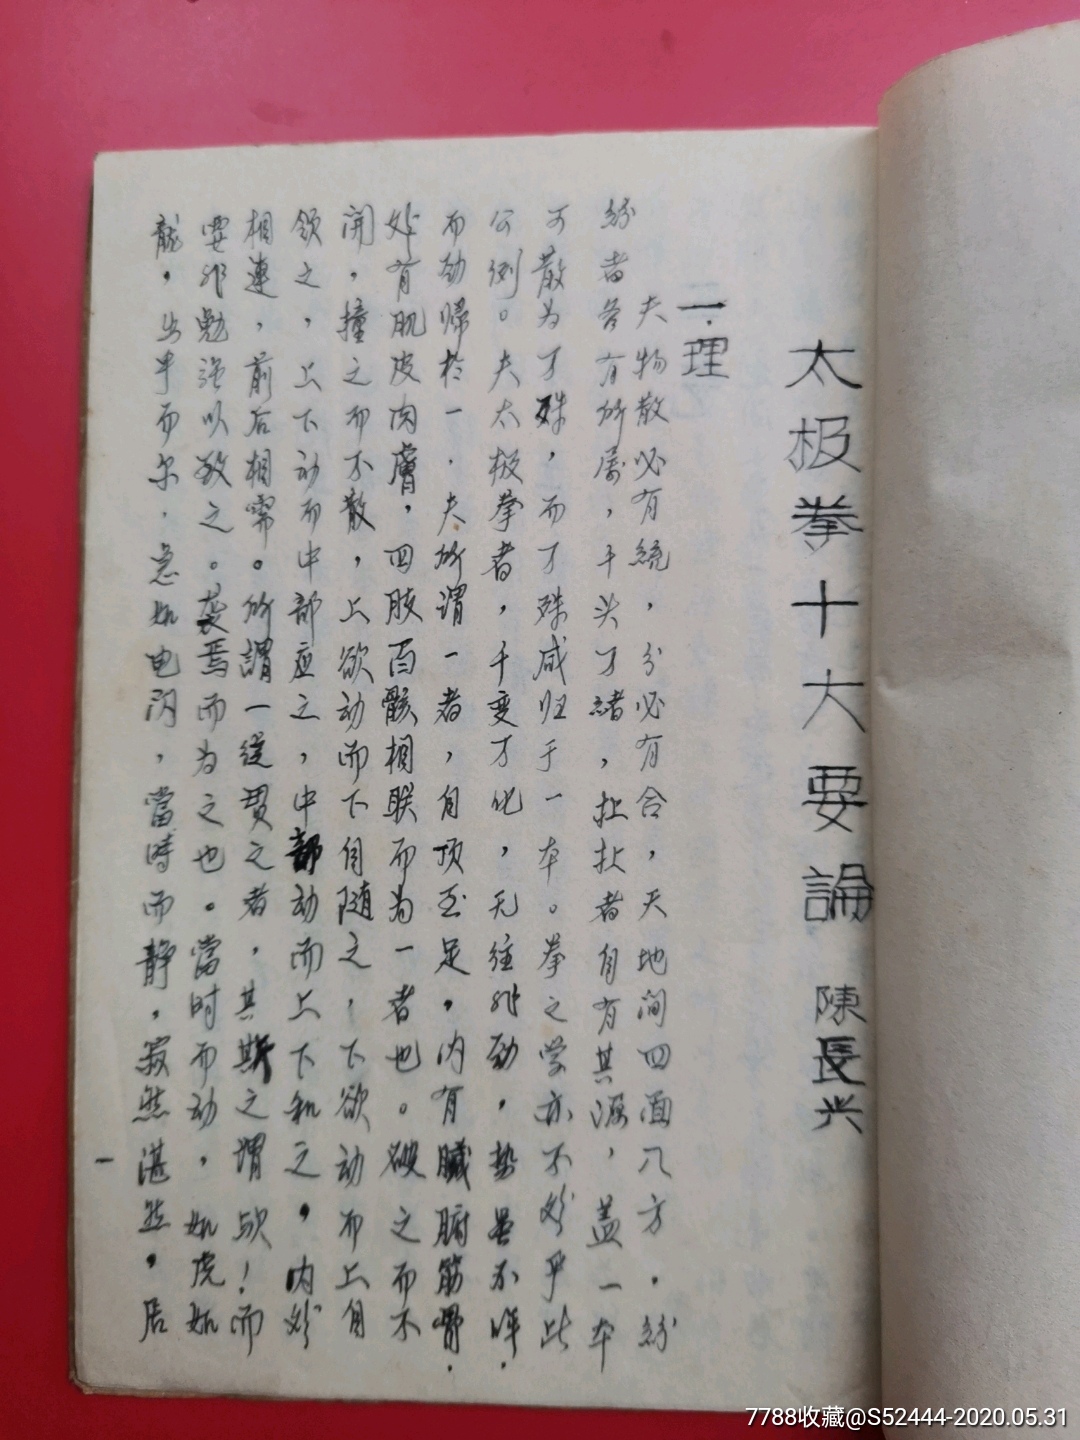 太极拳十大要論
陳長兴
一.理
夫物散必有統，分必有合，天地间四面八方，紛
紛者各有所属，千头万緒，攘攘者自有其源，盖一本
可散为万殊，而万殊咸归于一本。拳之学亦不外乎此
公例。夫太极拳者，千变万化，无往非劲，势虽不侔，
而劲歸於一．夫所谓一者，自顶至足，内有臟腑筋骨．
外有肌皮肉膚，四肢百骸相联而为一者也。破之而不
開，撞之而不散，上欲动而下自随之，下欲动而上自
领之，上下动而中部应之，中部动而上下和之，内外
相連，前后相需。所謂一以贯之者，其斯之謂欤！而
要非勉强以致之。袭焉而为之也。當时而动，如虎如
龍，出乎而尔．急如电闪，當時而静，寂然湛然，居
一
7788收藏@S52444-2020.05.31